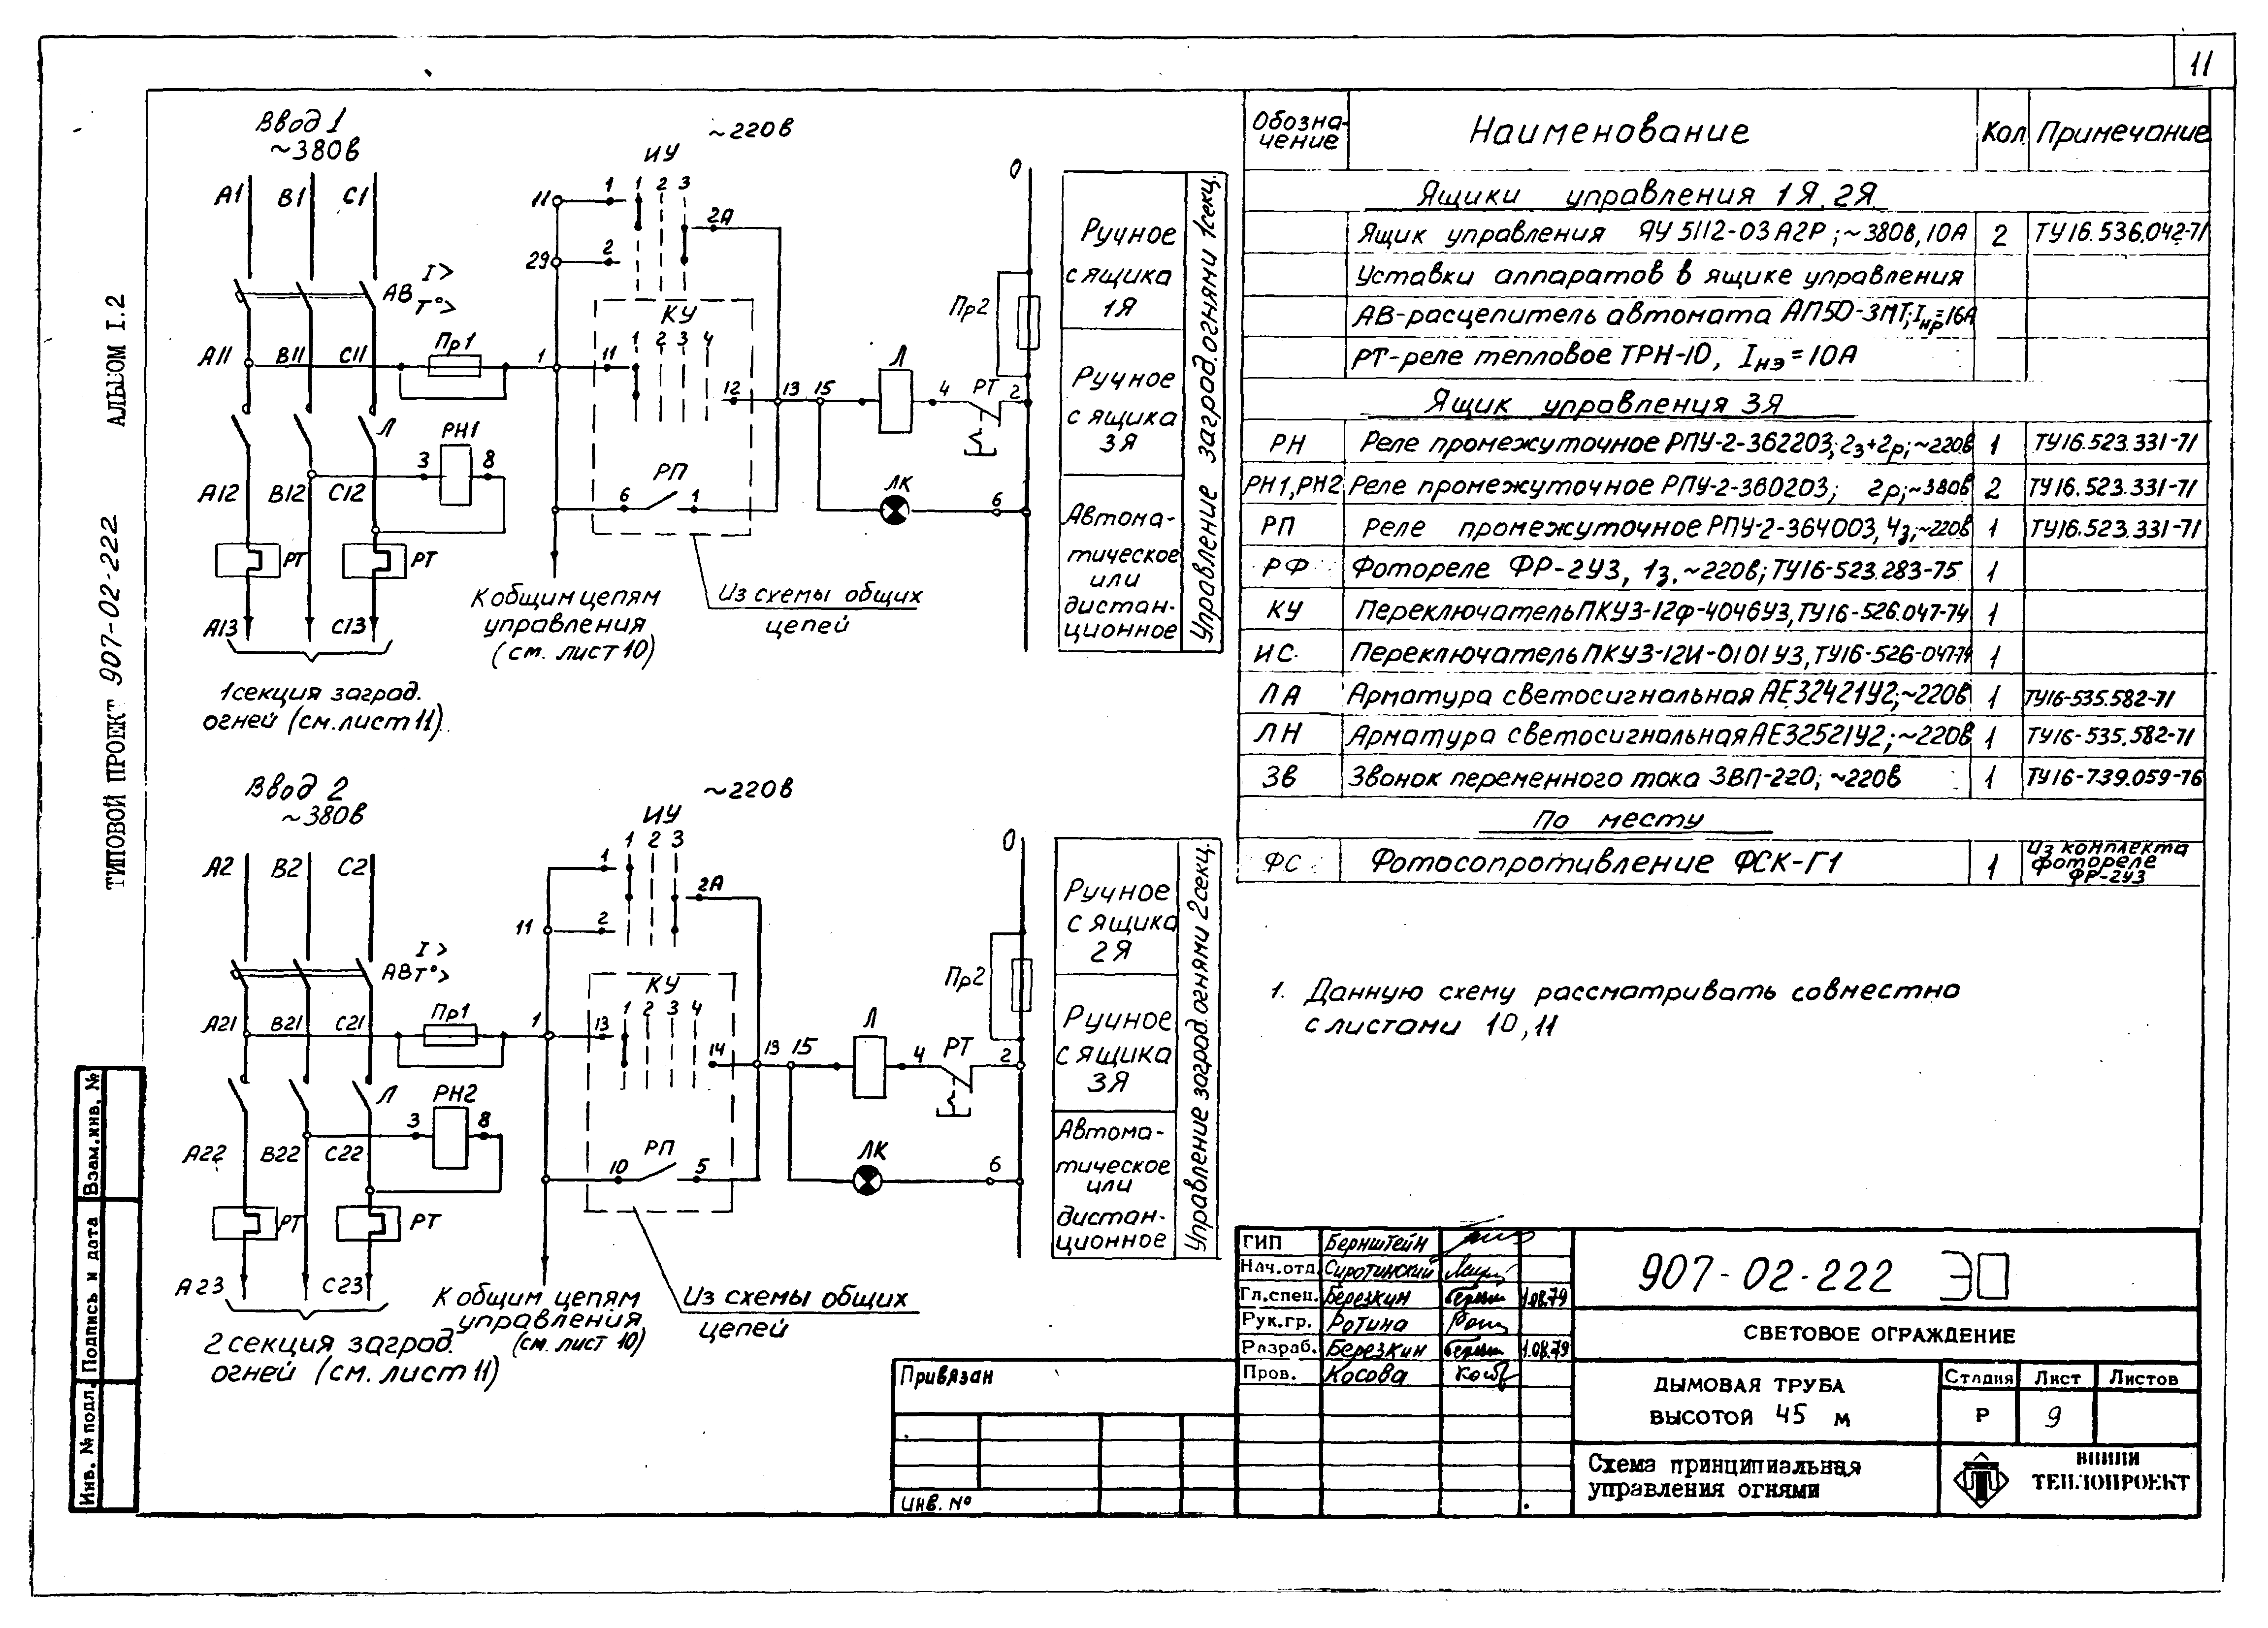 11
АЛЬБОМ I.2
ТИПОВОЙ ПРОЕКТ 907-02-222
Ввод 1
~380в
A1 B1 C1
I>
АВ
T°>
A11 B11 C11
Пр1
1
Л
РН1
3 8
A12 B12 C12
РТ РТ
A13 C13
1 секция заград.
огней (см. лист 11)
~220в
ИУ
1 1 2 3
11
2А
2
29
КУ
1 2 3 4
11
12 13 15
РП
6 1
Л
4 РТ 2
ЛК
6
0
Пр2
К общим цепям
управления
(см. лист 10)
Из схемы общих
цепей
Ручное
с ящика
1Я
Ручное
с ящика
3Я
Автома-
тическое
или
дистан-
ционное
Управление заград. огнями 1 секц.
Ввод 2
~380в
A2 B2 C2
I>
АВ T°>
A21 B21 C21
Пр1
1
Л
РН2
3 8
A22 B22 C22
РТ РТ
A23 C23
2 секция заград.
огней (см. лист 11)
~220в
ИУ
1 2 3
1
2А
2
11
КУ
1 2 3 4
13
14 13 15
РП
10 5
Л
4 РТ 2
ЛК
6
0
Пр2
К общим цепям
управления
(см. лист 10)
Из схемы общих
цепей
Ручное
с ящика
2Я
Ручное
с ящика
3Я
Автома-
тическое
или
дистан-
ционное
Управление заград. огнями 2 секц.
Обозна-
чение Наименование Кол. Примечание
Ящики управления 1Я, 2Я
Ящик управления ЯУ 5112-03А2Р; ~380в, 10А 2 ТУ16.536.042-71
Уставки аппаратов в ящике управления
АВ-расцепитель автомата АП50-3МТ; Iнр=16А
РТ-реле тепловое ТРН-10, Iнэ=10А
Ящик управления 3Я
РН Реле промежуточное РПУ-2-362203; 2з+2р; ~220в 1 ТУ16.523.331-71
РН1, РН2 Реле промежуточное РПУ-2-360203; 2р; ~380в 2 ТУ16.523.331-71
РП Реле промежуточное РПУ-2-364003, 4з; ~220в 1 ТУ16.523.331-71
РФ Фотореле ФР-2У3, 1з, ~220в; ТУ16-523.283-75 1
КУ Переключатель ПКУ3-12Ф-4046У3, ТУ16-526.047-74 1
ИС Переключатель ПКУ3-12И-0101У3, ТУ16-526-047-74 1
ЛА Арматура светосигнальная АЕ32421У2; ~220в 1 ТУ16-535.582-71
ЛН Арматура светосигнальная АЕ32521У2; ~220в 1 ТУ16-535.582-71
Зв Звонок переменного тока ЗВП-220; ~220в 1 ТУ16-739.059-76
По месту
ФС Фотосопротивление ФСК-Г1 1 Из комплекта
фотореле
ФР-2У3
1. Данную схему рассматривать совместно
с листами 10, 11
Взам.инв. №
Подпись и дата
Инв. № подл.
Привязан
Инв. №
ГИП Бернштейн
Нач.отд. Сиротинский
Гл.спец. Березкин 1.08.79
Рук.гр. Ротина
Разраб. Березкин 1.08.79
Пров. Косова
907-02-222 ЭО
СВЕТОВОЕ ОГРАЖДЕНИЕ
ДЫМОВАЯ ТРУБА
ВЫСОТОЙ 45 м
Стадия Лист Листов
Р 9
Схема принципиальная
управления огнями
ВНИПИ
ТЕПЛОПРОЕКТ